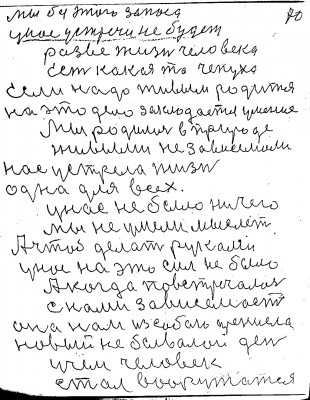 70
мы бу этого запоса
унас устречи не будет
разве жизн человека
Ест какая то чепуха
если надо живым родится
на это дело закладается умение
Мы родилис в природе
живыми независемыми
нас устрела жизн
одна для всех.
унас не было ничего
мы не умели мыслет
Ачтоб делат руками
унас на это сил не было
Акогда повстречалас
снами зависемост
она нам из собою принесла
новый не бывалой ден
учем человек
стал вооружатся